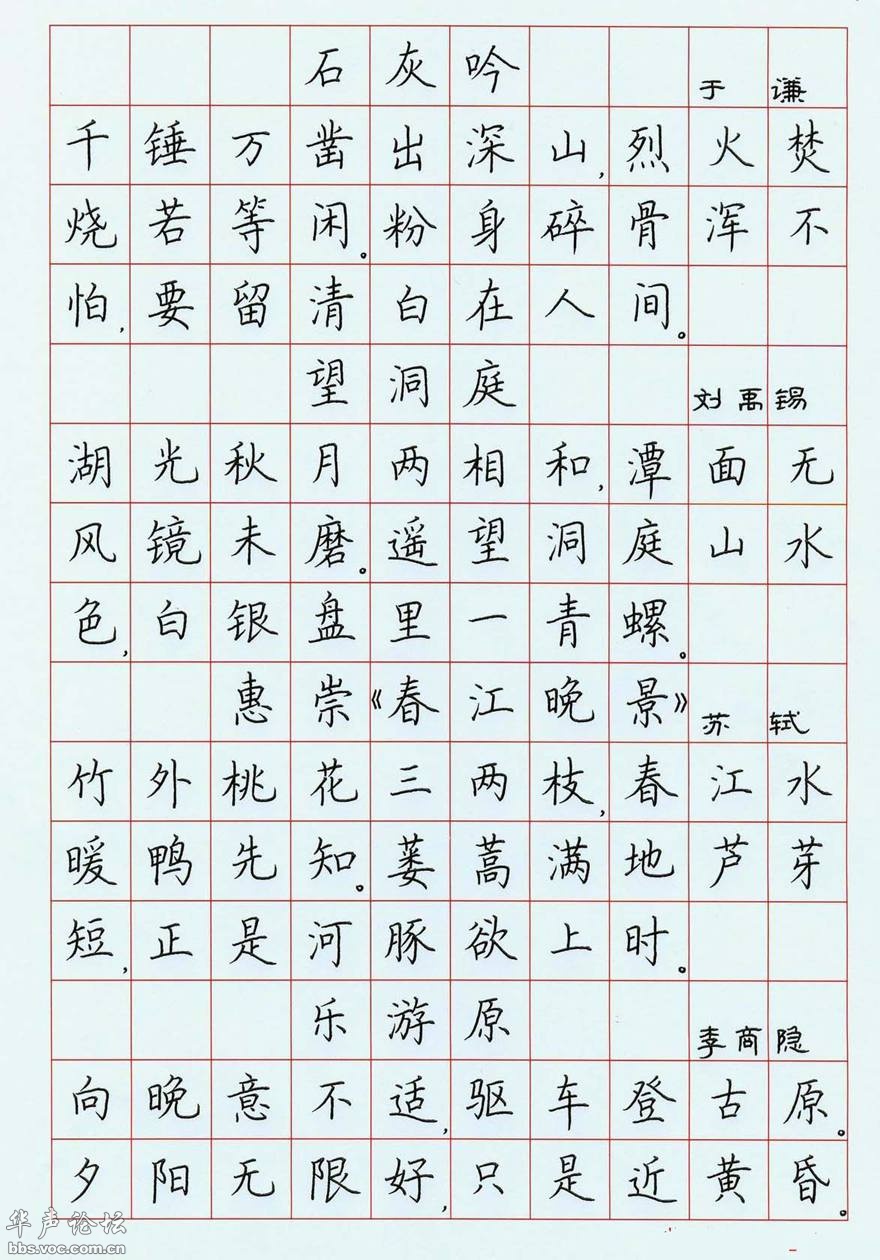 石灰吟 于谦
千锤万凿出深山,烈火焚
烧若等闲。粉身碎骨浑不
怕,要留清白在人间。
望洞庭 刘禹锡
湖光秋月两相和,潭面无
风镜未磨。遥望洞庭山水
色,白银盘里一青螺。
惠崇《春江晚景》 苏轼
竹外桃花三两枝,春江水
暖鸭先知。蒌蒿满地芦芽
短,正是河豚欲上时。
乐游原 李商隐
向晚意不适,驱车登古原。
夕阳无限好,只是近黄昏。
华声论坛
bbs.voc.com.cn